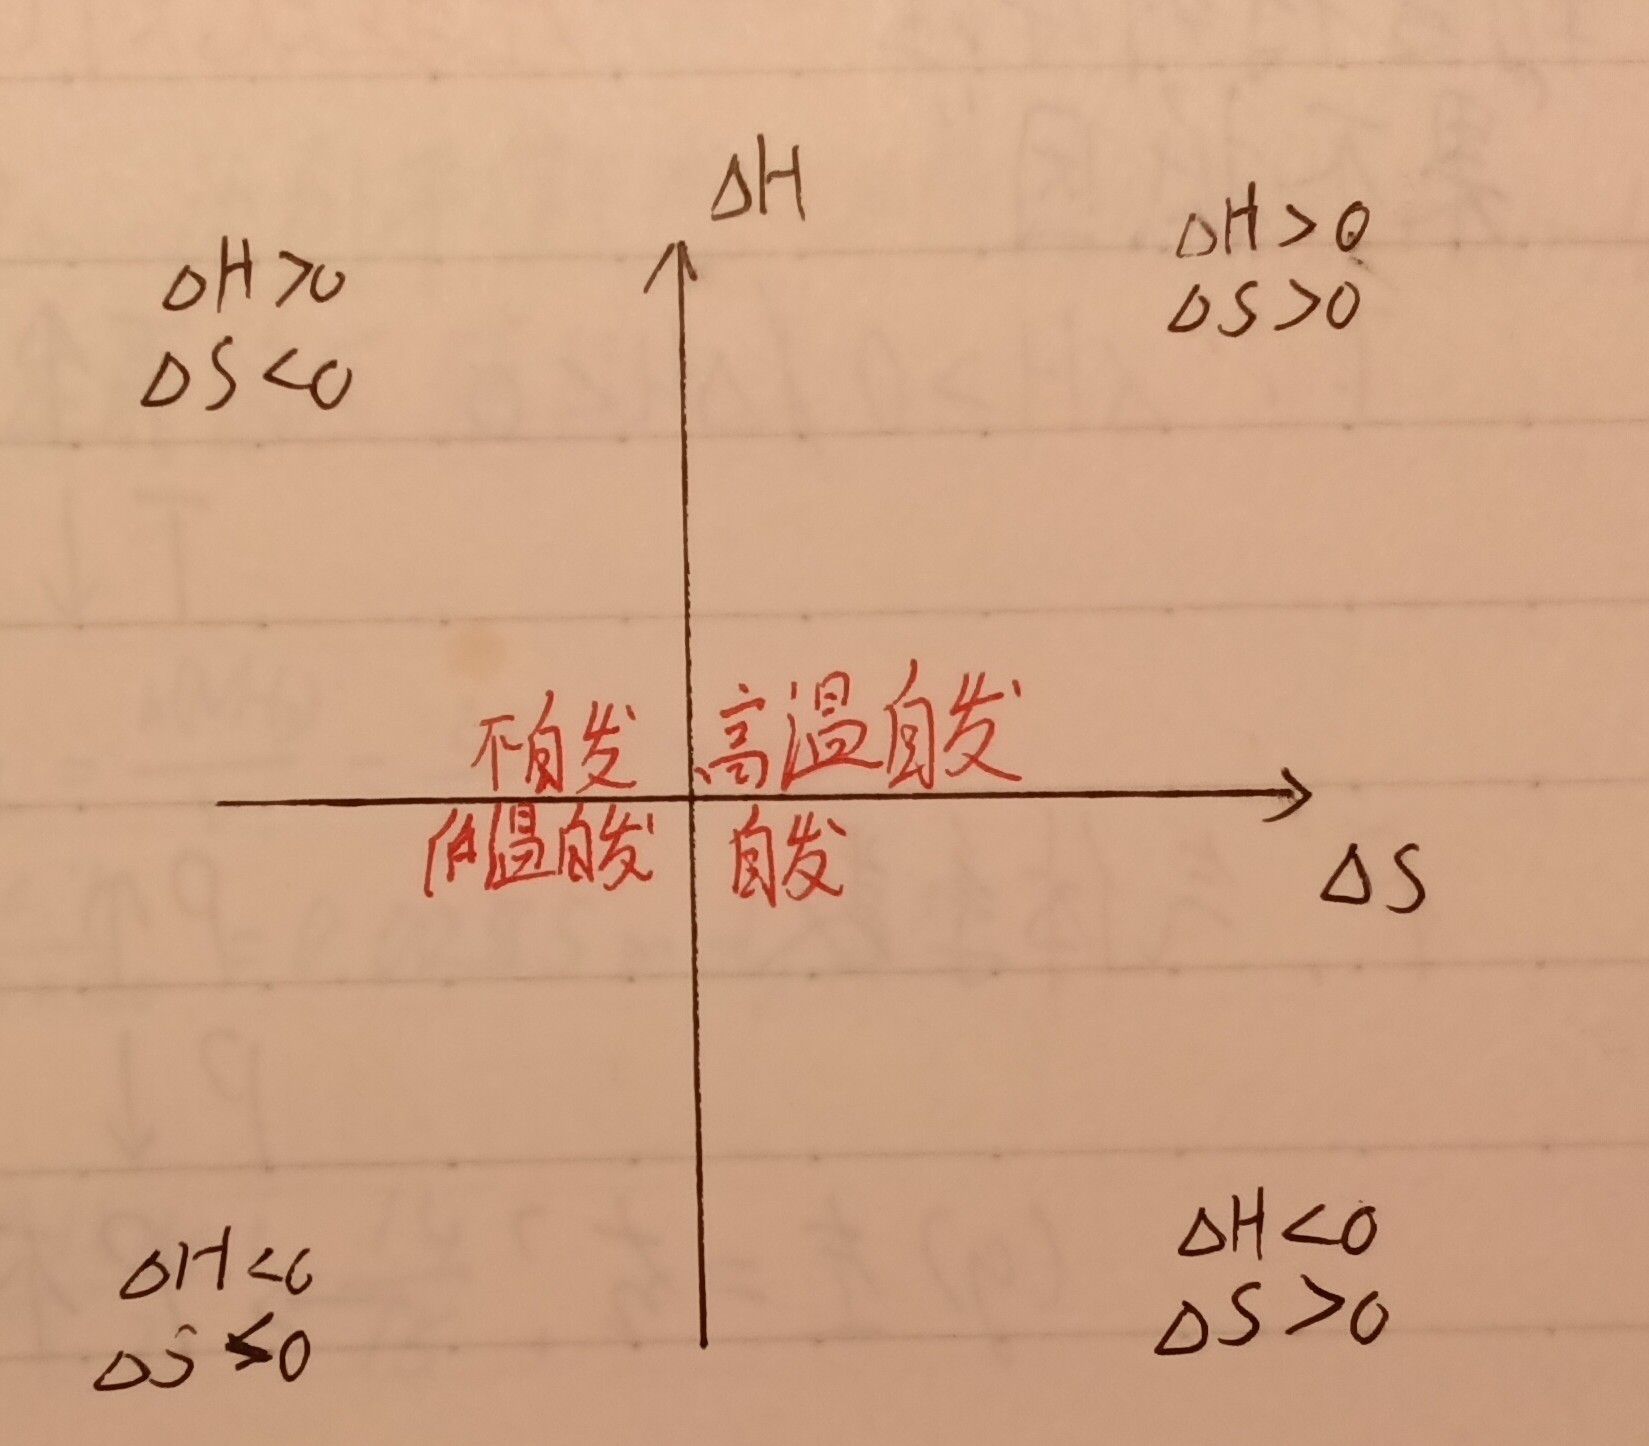 ΔH
ΔH>0
ΔS<0
ΔH>0
ΔS>0
不自发
高温自发
低温自发
自发
ΔS
ΔH<0
ΔS<0
ΔH<0
ΔS>0